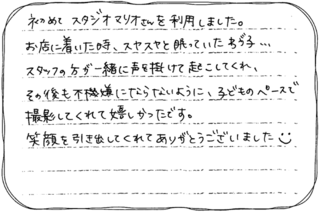 初めて スタジオマリオさんを利用しました。
お店に着いた時、スヤスヤと眠っていた我が子…
スタッフの方が一緒に声を掛けて起こしてくれ、
その後も不機嫌にならないように、子どものペースで
撮影してくれて嬉しかったです。
笑顔を引き出してくれてありがとうございました